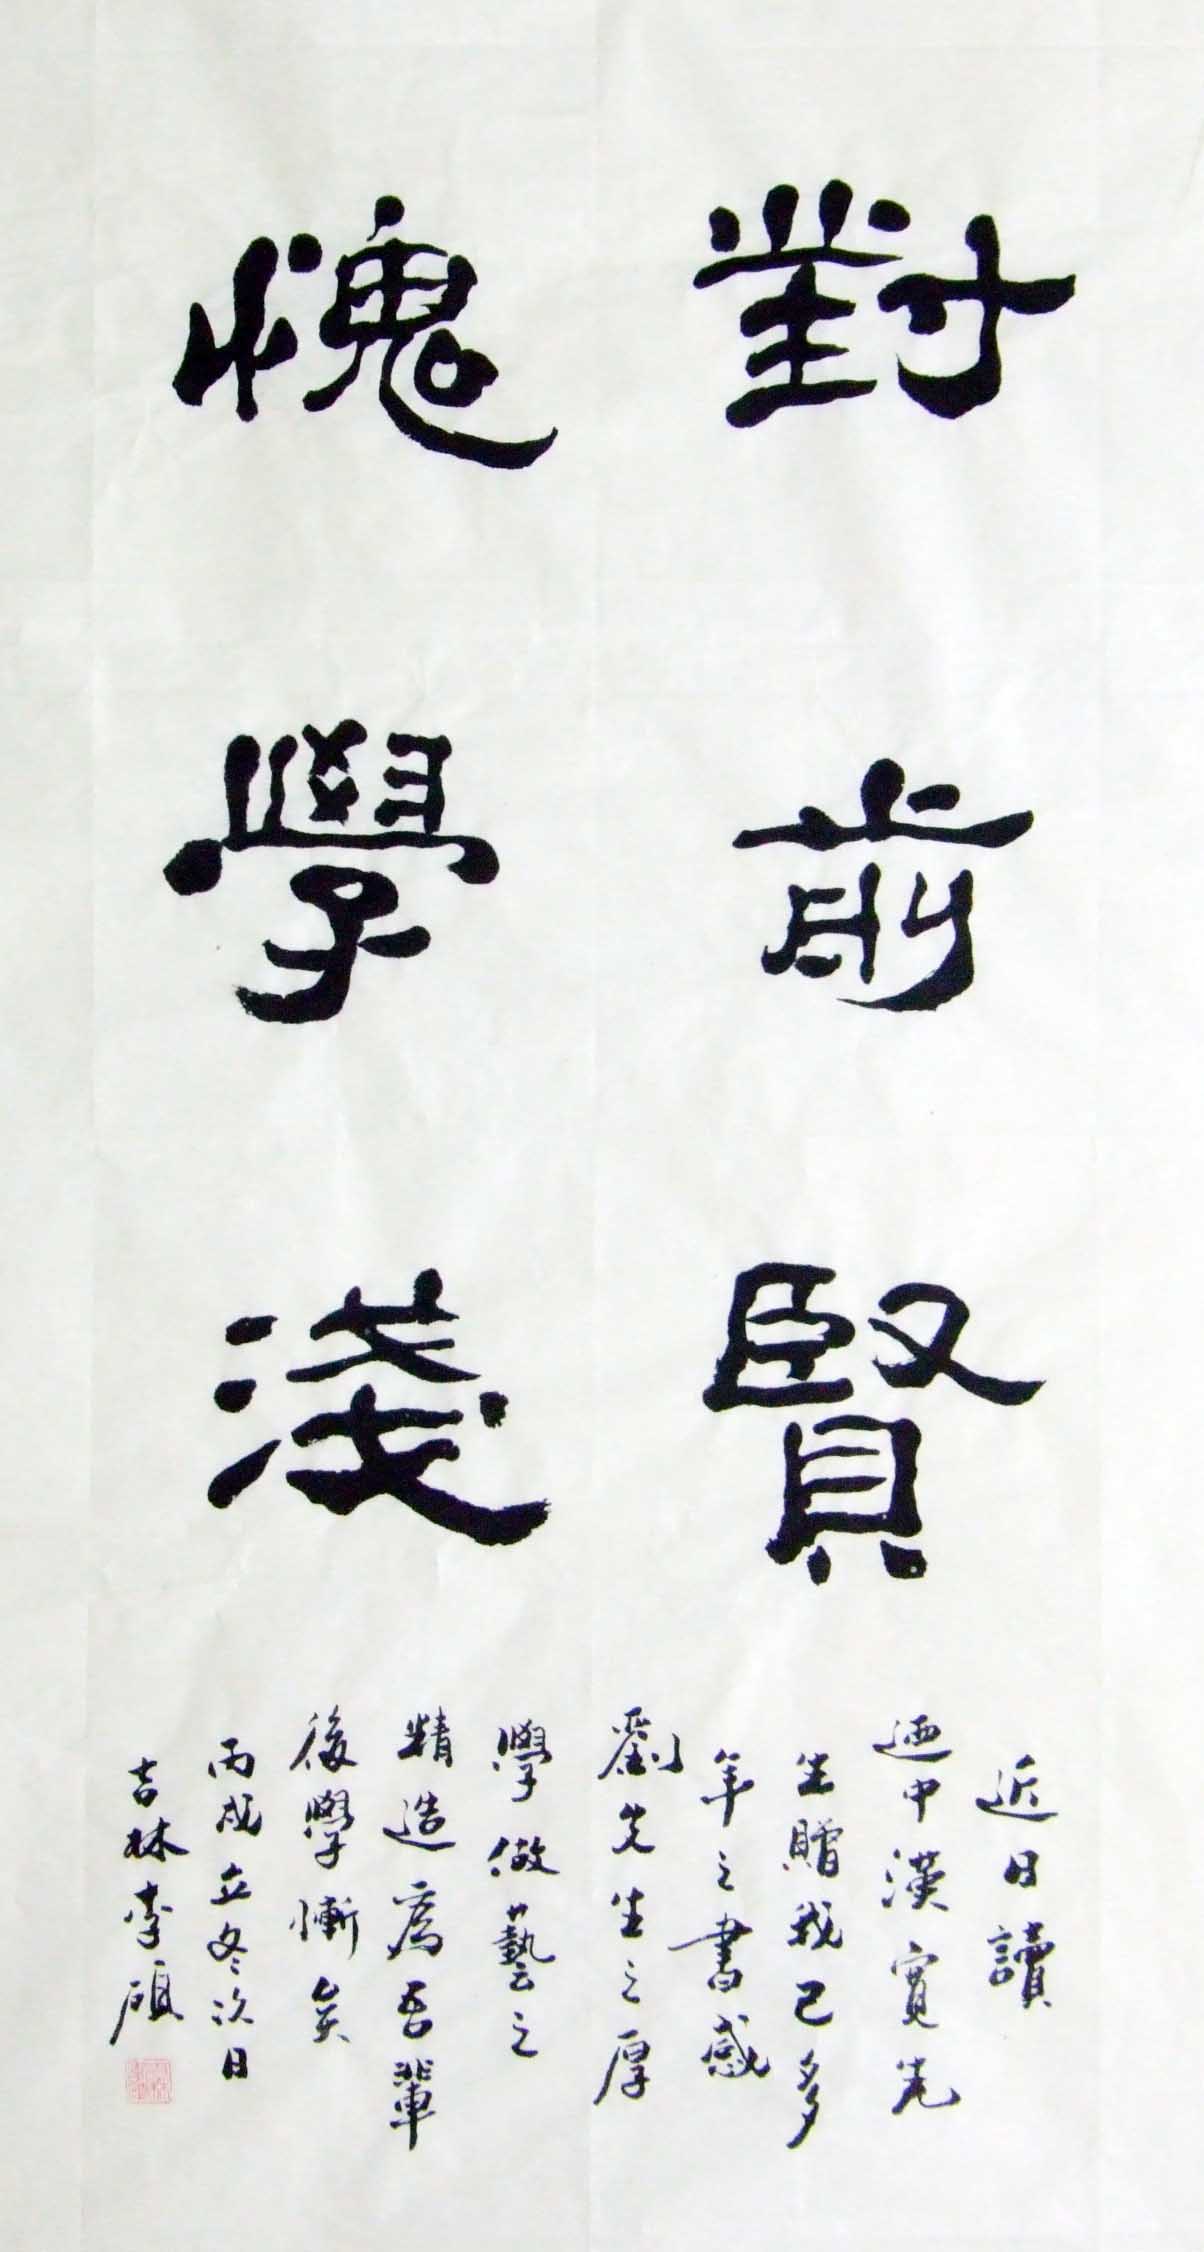 對前賢
愧學淺
近日讀
迺中漢寬先
生贈我已多
年之書感
劉先生之厚
學做藝之
精造為吾輩
後學慚矣
丙戌立冬次日
吉林李碩